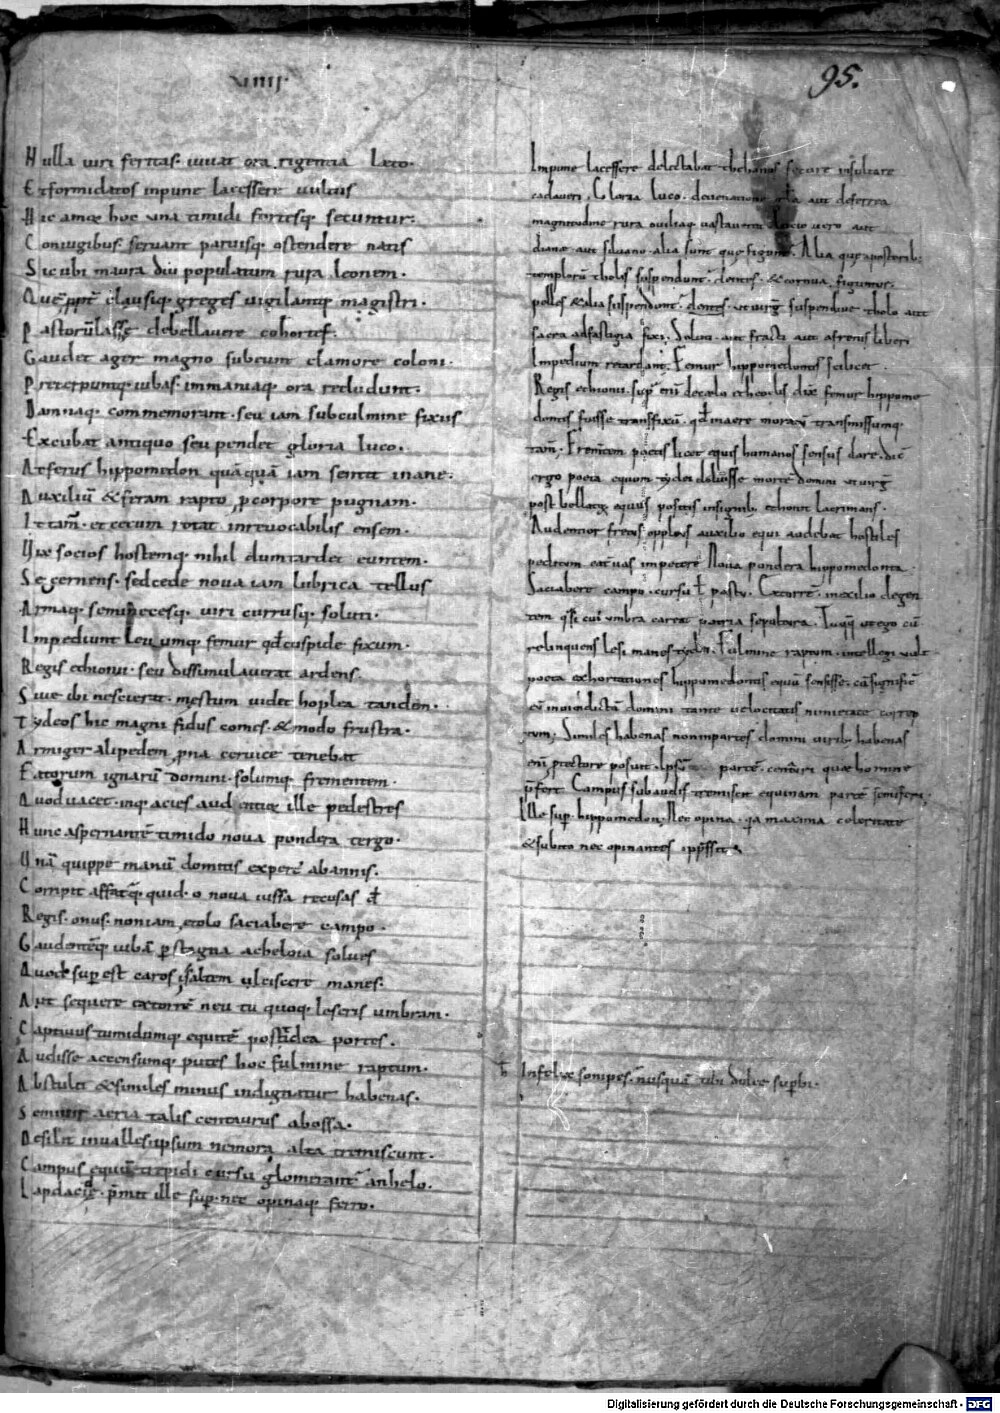 VIIII
95.
Nulla viri feritas. iuvat ora rigentia laeto.
Et formidatos inpune lacessere vultus
Hic amor hoc una timidi fortesq. secuntur.
Coniugibus. servant parvisq. ostendere natis
Sic ubi maura diu populatum rura leonem.
Quē ppt̄ clausiq. greges vigilantq. magistri.
Pastorū lasse debellavere cohortes.
Gaudet ager magno subeunt clamore coloni.
Preterpuntq. iubas. immaniaq. ora recludunt.
Damnaq. commemorant. seu iam sub culmine fixus
Excubat antiquo seu pendet gloria luco.
At ferus hippomedon quāquā iam sentit inane.
Auxiliū & seram rapto p corpore pugnam.
It tam̄. et cecum rotat inrevocabilis ensem.
Vix socios hostemq. nihil dum tardet euntem.
Secernens. sed cede nova iam lubrica tellus
Armaq. semineces q. viri currusq. soluti.
Impediunt leuumq. femur qđ cuspide fixum.
Regis echionii. seu dissimulaverat ardens.
Sive ibi nescierat. mestum videt hoplea tandem.
Tydeos hic magni fidus comes. & modo frustra.
Armiger alipedem pna cervice tenebat
Fatorum ignarū domini. solumq. frementem.
Quod vacet. inq. acies audentior ille pedestres
Hunc aspernantē timido nova pondera tergo.
Unā quippe manū domitus experť ab annis.
Corripit affatq. quid. o nova iussa recusas
Regis. onus. non iam etolo saciabere campo.
Gaudentēq. iubā p stagna acheloia solves
Quod sup est caros i saltem ulciscere manes.
Aut sequere extorrē neu tu quoq. leseris umbram.
Captivus tumidumq. equitē post tidea portes.
Audisse accensumq. putes hoc fulmine raptum.
Abstulit & similes minus indignatur habenas.
Semifer aeria talis centaurus ab ossa.
Desilit in valles ipsum nemora alta tremiscunt.
Campus equū trepidi cursu glomerant anhelo.
Lapdacię. p̄mit ille sup. nec opinaq. ferro.
Impune lacessere delectabat thebanos secure insultare
cadaveri. Gloria luco. devenatione aut deferrea
magnitudine rura oviliaq. vastaverit vero aut
dianae aut silvano. alia sunt que figunt. Alia que a postorib:
templorū tholis suspendunt. dentes. & cornua figuntur.
pelles & alia suspendunt. dentes. ut virḡ suspendive tholo aut
sacra ad fastigia fixi. Soluti. aut fracti aut a frenis liberi
Impedium retardant. Femur hippomedontis scilicet.
Regis echionii. sup. enī decelo etheocli dix femur hippome
dontis fuisse transfixū. qđ inaere moraret transmissumq.
tam. Frementem poetis licet equis humanos sensus dare. dic̄
ergo poeta equom tydei doluisse morte domini ut virḡ
post bellator equus positis insignib. ethon it lacrimans.
Audentior fretus oppleos auxilio equi audebat hostiles
peditum catervas impetere Nova pondera hippomedonta.
Saciabere campo. cursu ł pastu. Extorrē. inexilio degen
tem qsi cui umbra careat patria sepultura. Tu qq ut ego cū
relinquens lesi manes tydei. Fulmine raptum. intellegi vult
poeta exhortationes hippomedontis equū sensisse. cū significē
eū invindictā domini tante velocitatis nimietate corrop
tum. Similes habenas non impartes domini virib. habenas
enī p tectore posuit. Ipsū partē. centauri qua homine
p̄fert Campus subaudis tremiscit equinam partē semiferi.
Ille sup. hippomedon. Nec opina. qa maxima celeritate
& subito nec opinantes. ppssit.
Infelix sonipes. nusquā tibi dulce superbi.
Digitalisierung gefördert durch die Deutsche Forschungsgemeinschaft - DFG